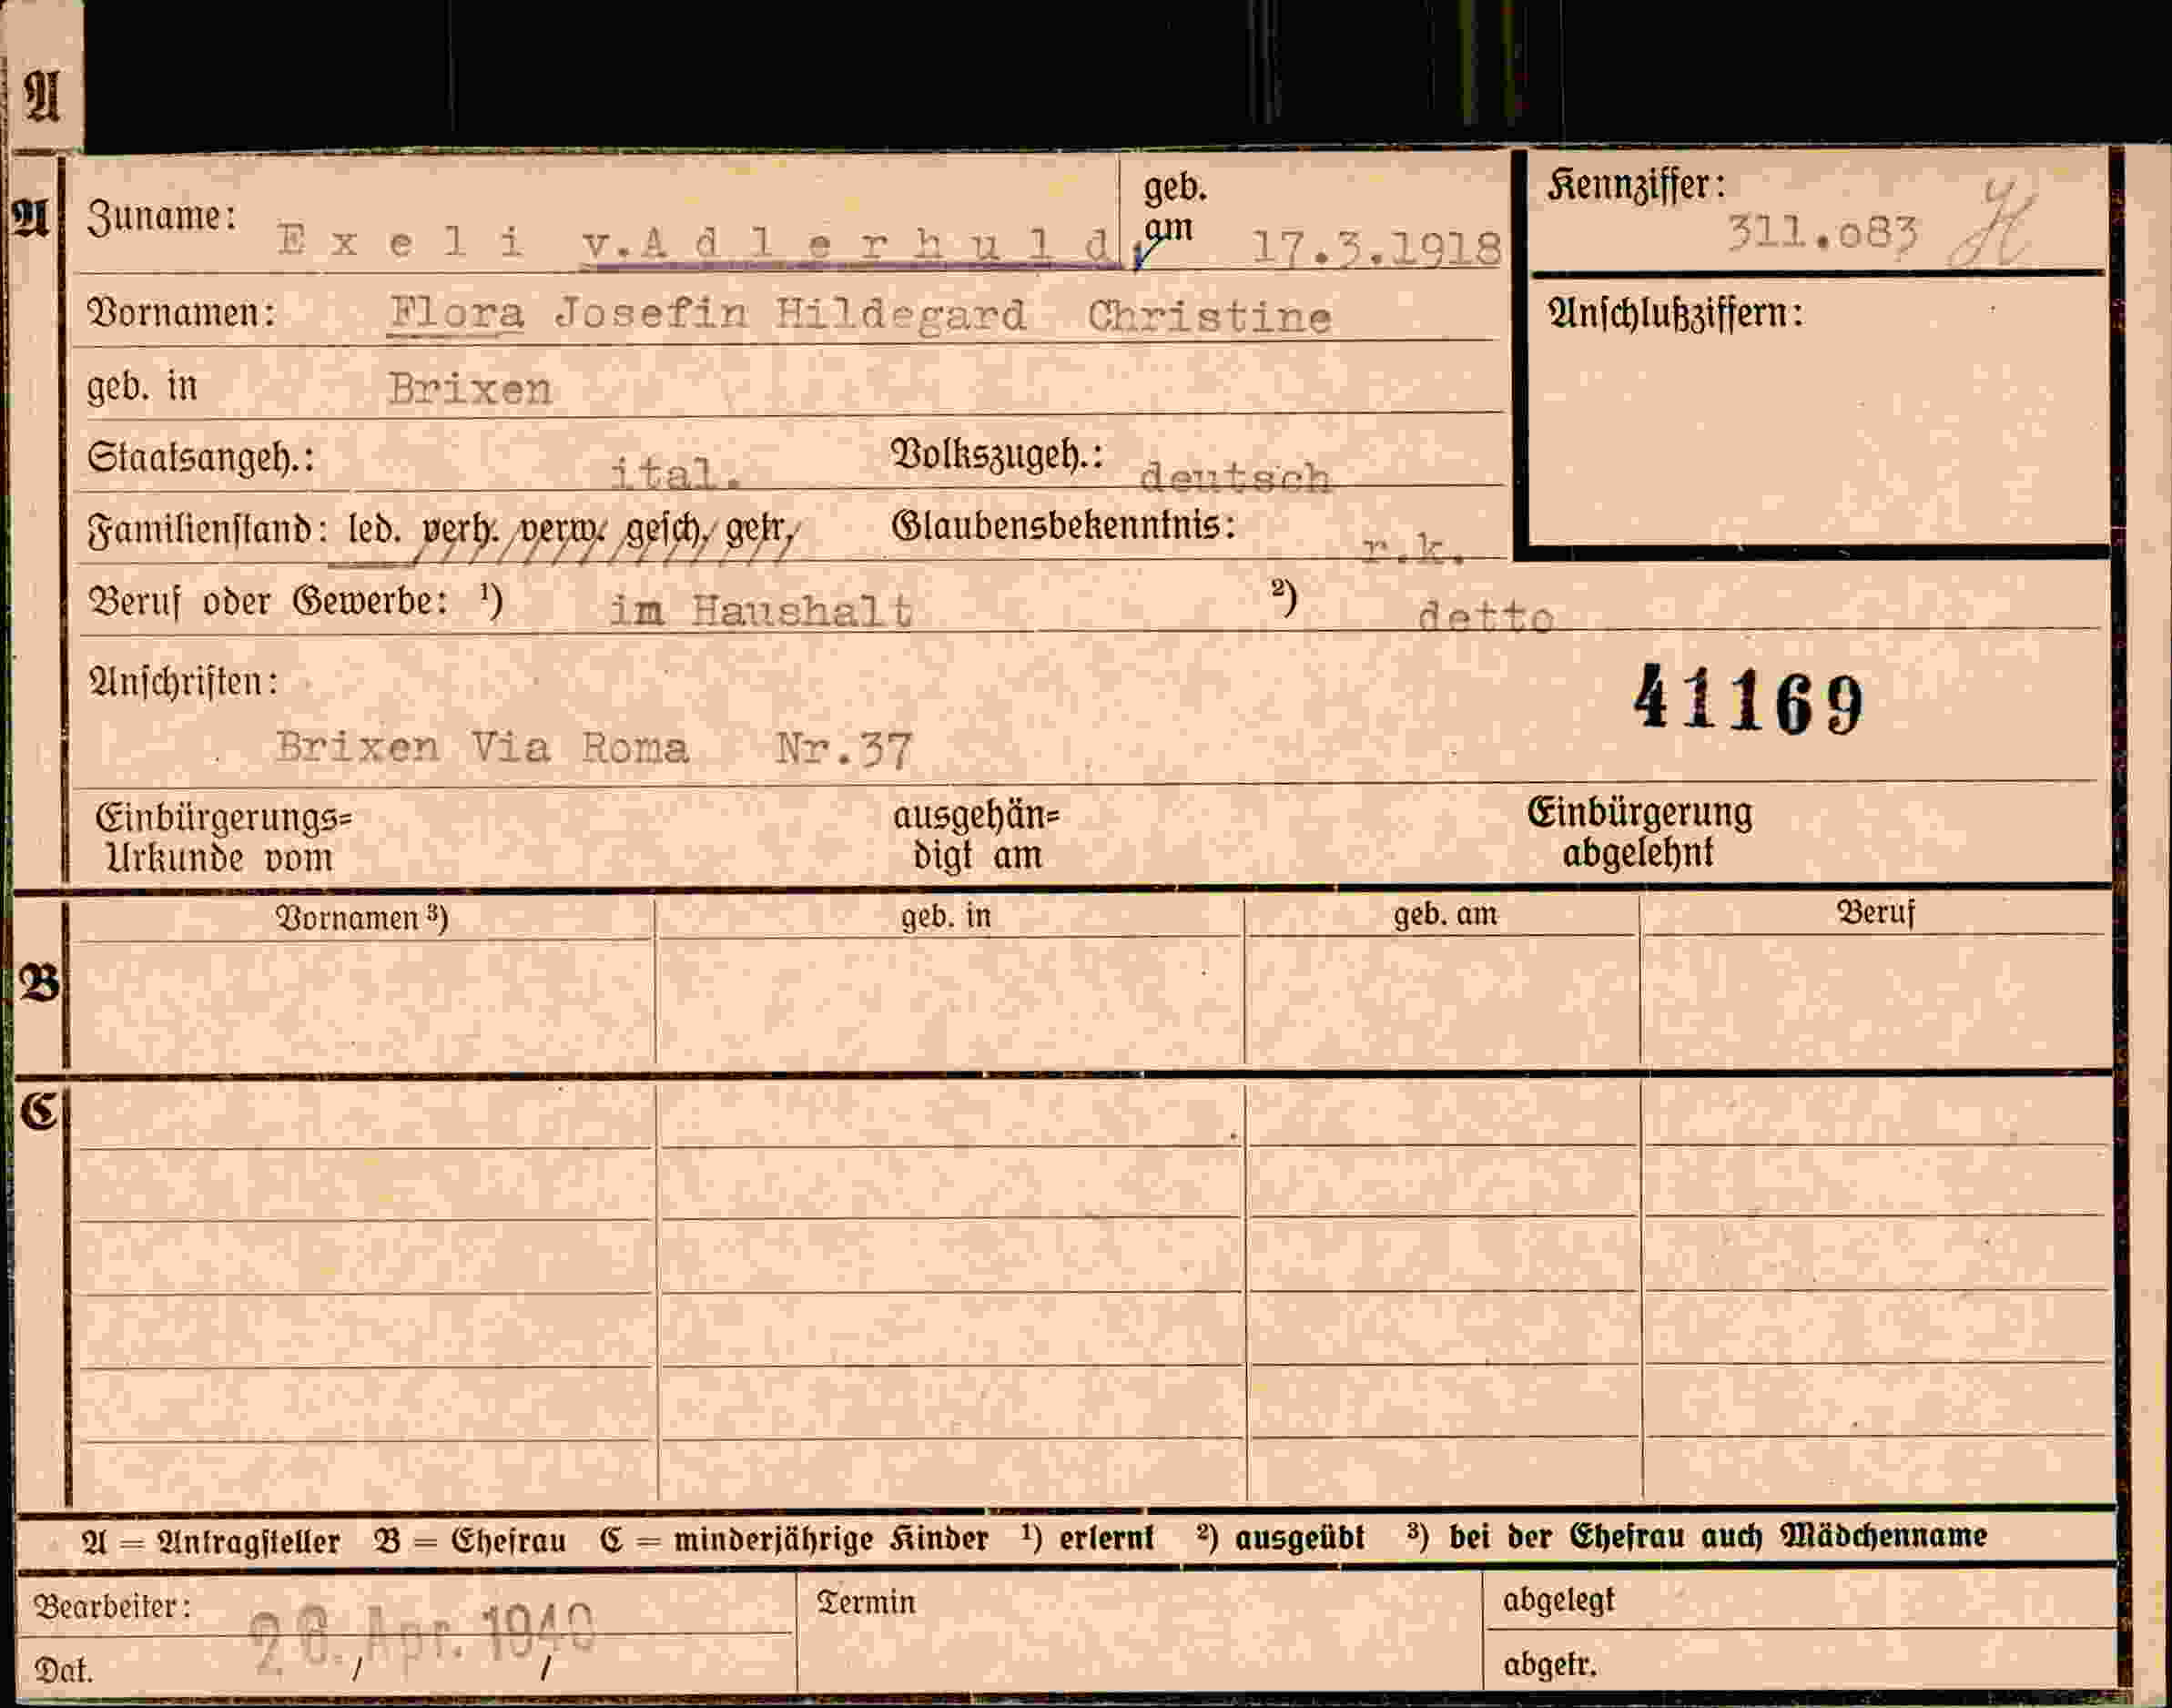 A
A
Zuname: Exeli v. Adlerhuld geb. am 17.3.1918
Kennziffer: 311.o83 H
Vornamen: Flora Josefin Hildegard Christine
Anschlußziffern:
geb. in Brixen
Staatsangeh.: ital. Volkszugeh.: deutsch
Familienstand: led. verh. verw. gesch. getr. Glaubensbekenntnis: r.k.
Beruf oder Gewerbe: ¹) im Haushalt ²) detto
Anschriften:
41169
Brixen Via Roma Nr.37
Einbürgerungs= ausgehän= Einbürgerung
Urkunde vom digt am abgelehnt
Vornamen ³) geb. in geb. am Beruf
B
C
A = Antragsteller B = Ehefrau C = minderjährige Kinder ¹) erlernt ²) ausgeübt ³) bei der Ehefrau auch Mädchenname
Bearbeiter: Termin abgelegt
Apr. 1940
Dat. abgetr.